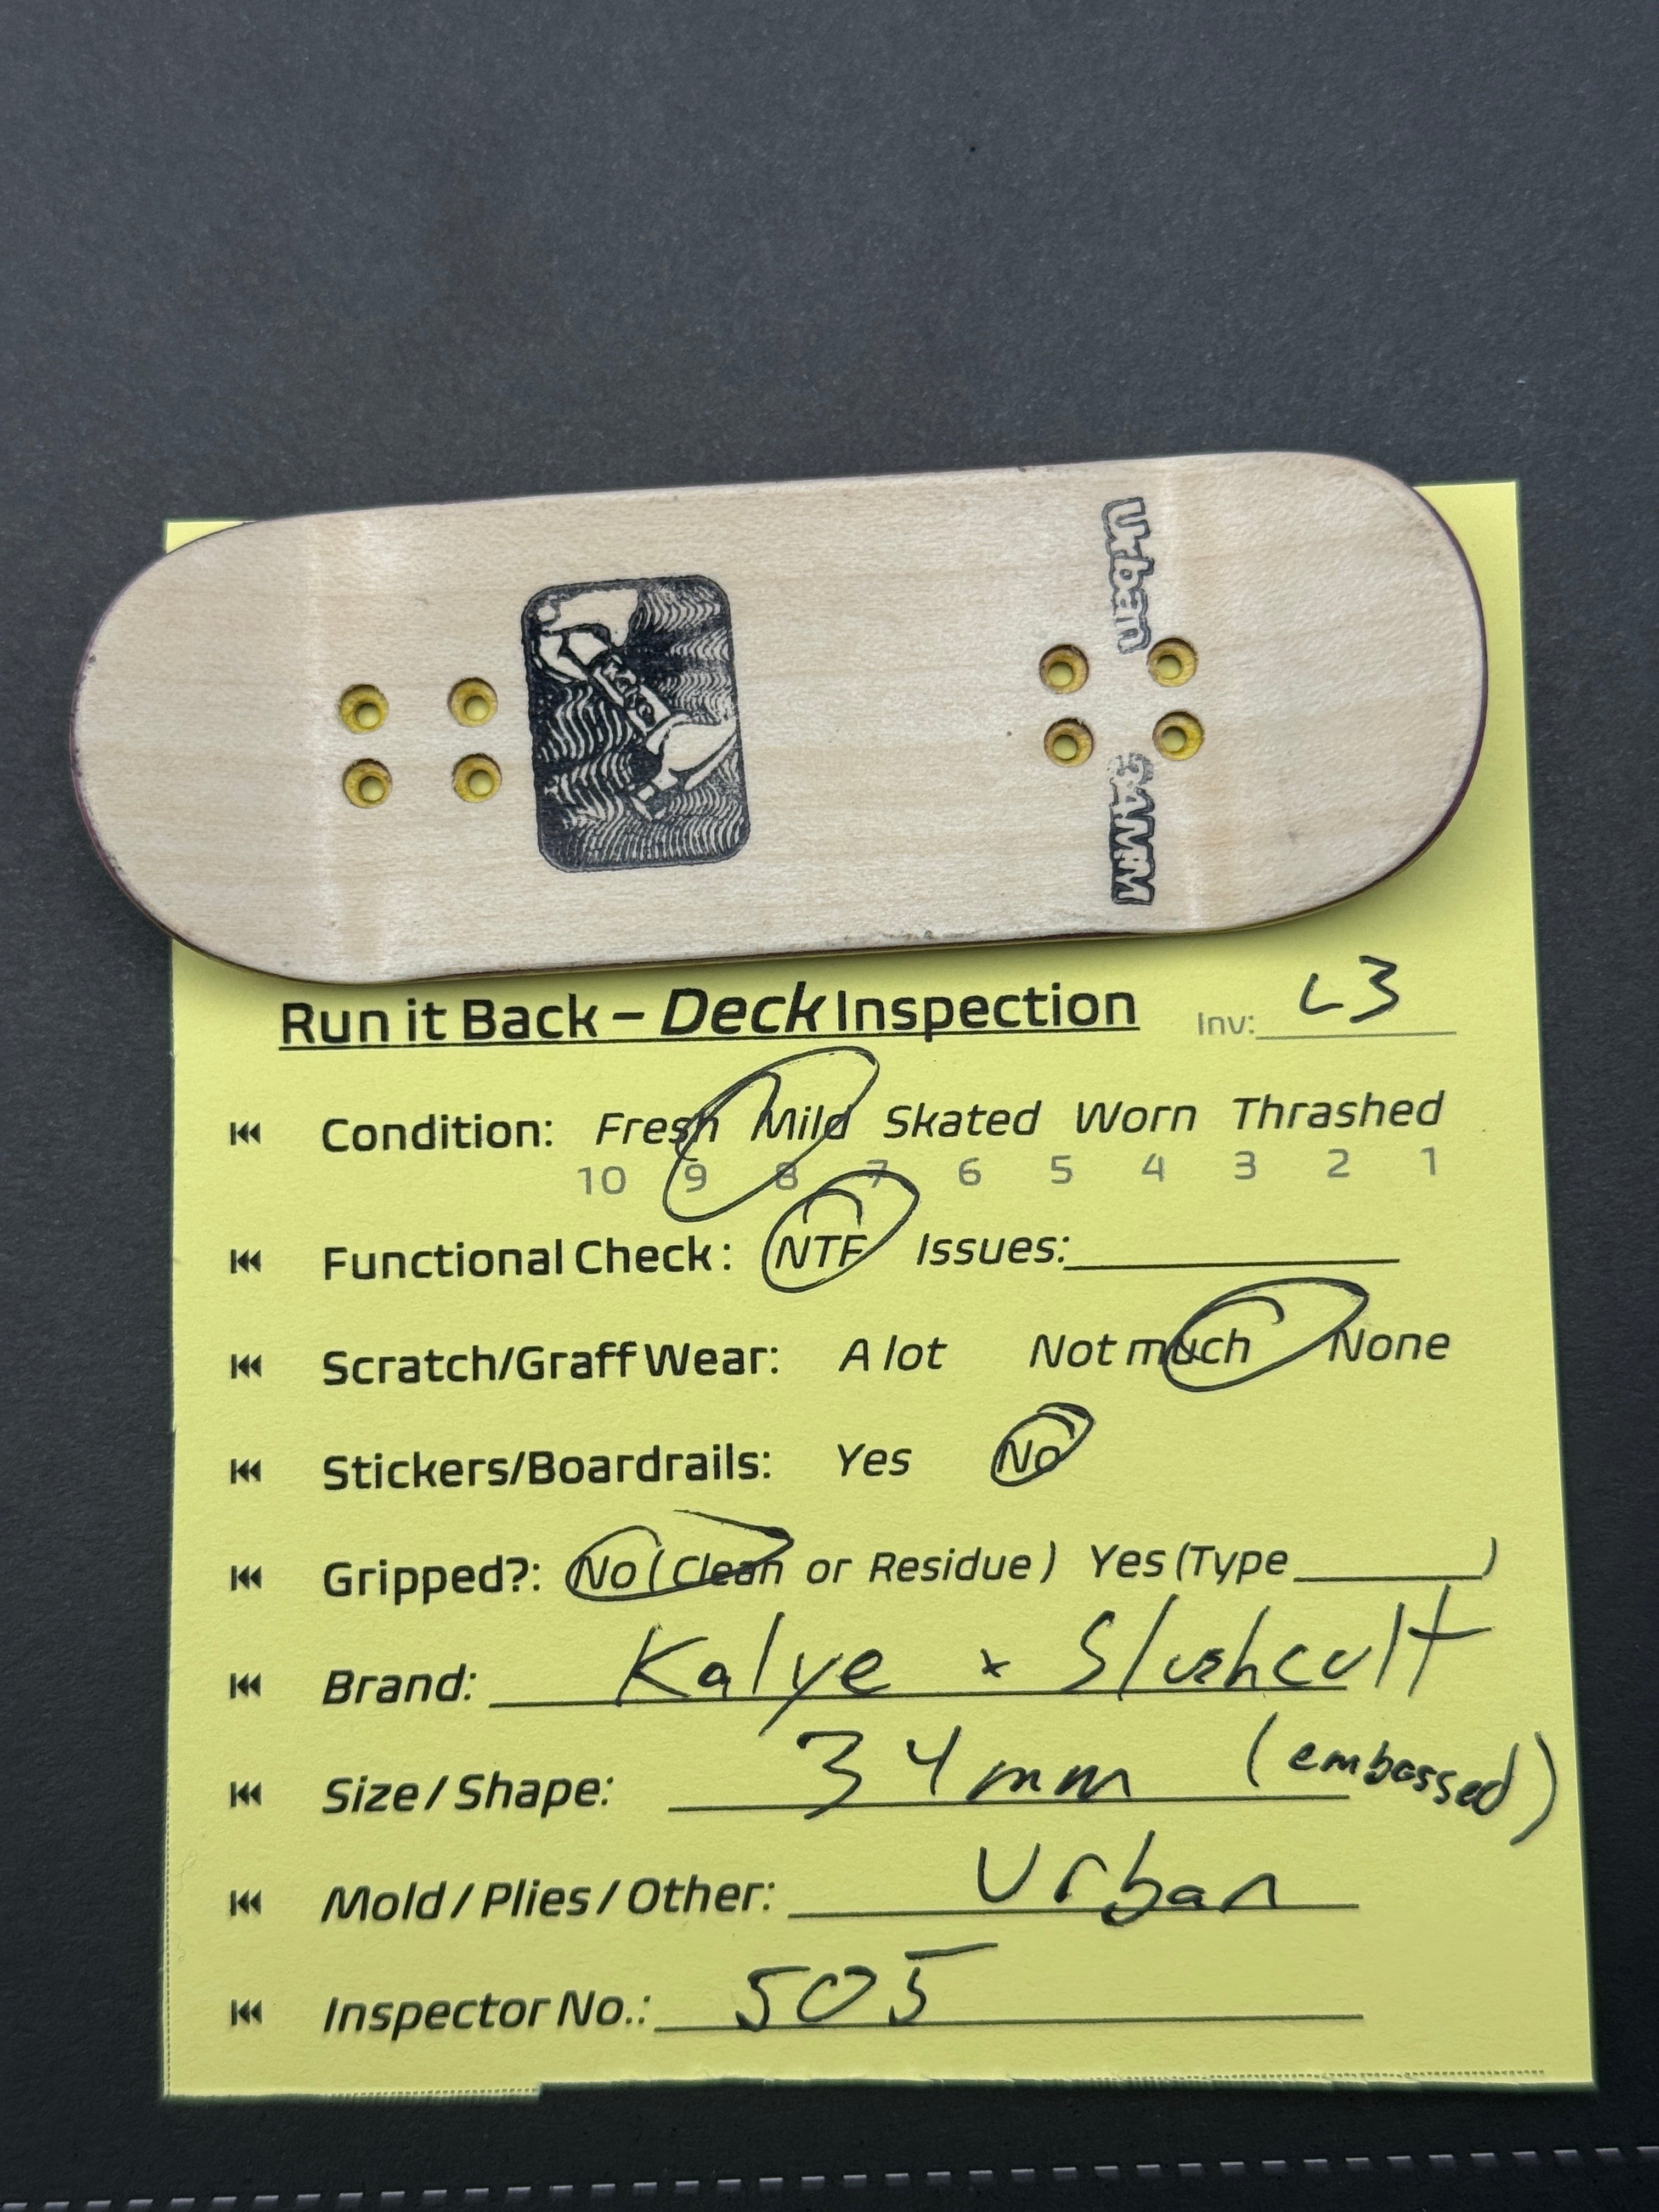 Urban
34MM
Run it Back – Deck Inspection Inv: L3
Condition: Fresh Mild Skated Worn Thrashed
10 9 8 7 6 5 4 3 2 1
Functional Check: NTF Issues:
Scratch/Graff Wear: A lot Not much None
Stickers/Boardrails: Yes No
Gripped?: No (Clean or Residue) Yes (Type )
Brand: Kalye x Slushcult
Size / Shape: 34mm (embossed)
Mold / Plies / Other: Urban
Inspector No.: 505